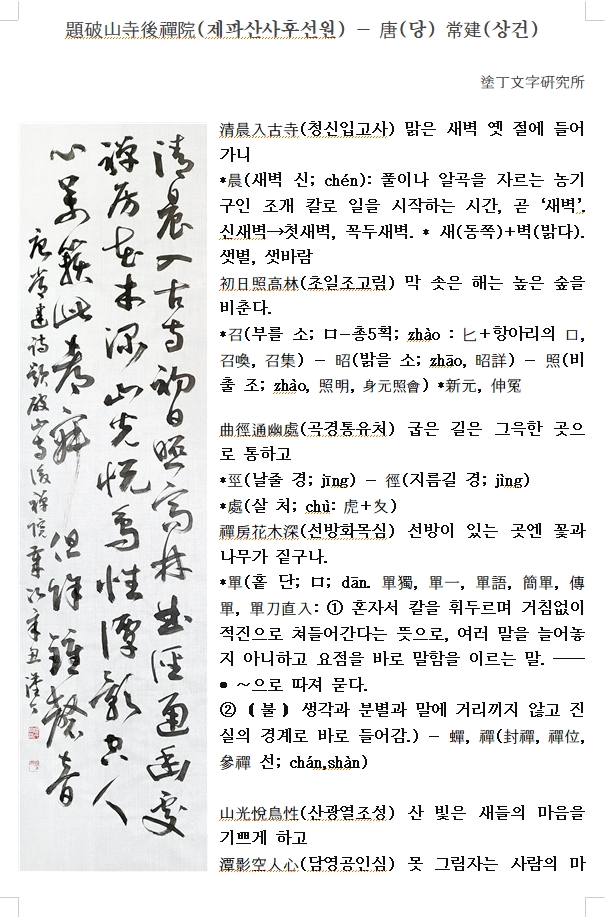 題破山寺後禪院(제파산사후선원) – 唐(당) 常建(상건)
塗丁文字硏究所
清晨入古寺初日照高林曲徑通幽處
禪房花木深山光悅鳥性潭影空人
心萬籟此都寂但餘鐘磬音
唐常建詩題破山寺後禪院 辛丑
清晨入古寺(청신입고사) 맑은 새벽 옛 절에 들어
가니
*晨(새벽 신; chén): 풀이나 알곡을 자르는 농기
구인 조개 칼로 일을 시작하는 시간, 곧 ‘새벽’.
신새벽→첫새벽, 꼭두새벽. * 새(동쪽)+벽(밝다).
샛별, 샛바람
初日照高林(초일조고림) 막 솟은 해는 높은 숲을
비춘다.
*召(부를 소; ㅁ-총5획; zhào : 匕+항아리의 口,
召喚, 召集) – 昭(밝을 소; zhāo, 昭詳) – 照(비
출 조; zhào, 照明, 身元照會) *新元, 伸冤
曲徑通幽處(곡경통유처) 굽은 길은 그윽한 곳으
로 통하고
*巠(날줄 경; jīng) – 徑(지름길 경; jìng)
*處(살 처; chù: 虎+夊)
禪房花木深(선방화목심) 선방이 있는 곳엔 꽃과
나무가 짙구나.
*單(홑 단; ㅁ; dān. 單獨, 單一, 單語, 簡單, 傳
單, 單刀直入: ① 혼자서 칼을 휘두르며 거침없이
적진으로 쳐들어간다는 뜻으로, 여러 말을 늘어놓
지 아니하고 요점을 바로 말함을 이르는 말. ――
• ～으로 따져 묻다.
② 〔불〕 생각과 분별과 말에 거리끼지 않고 진
실의 경계로 바로 들어감.) – 蟬, 禪(封禪, 禪位,
參禪 선; chán,shàn)
山光悅鳥性(산광열조성) 산 빛은 새들의 마음을
기쁘게 하고
潭影空人心(담영공인심) 못 그림자는 사람의 마